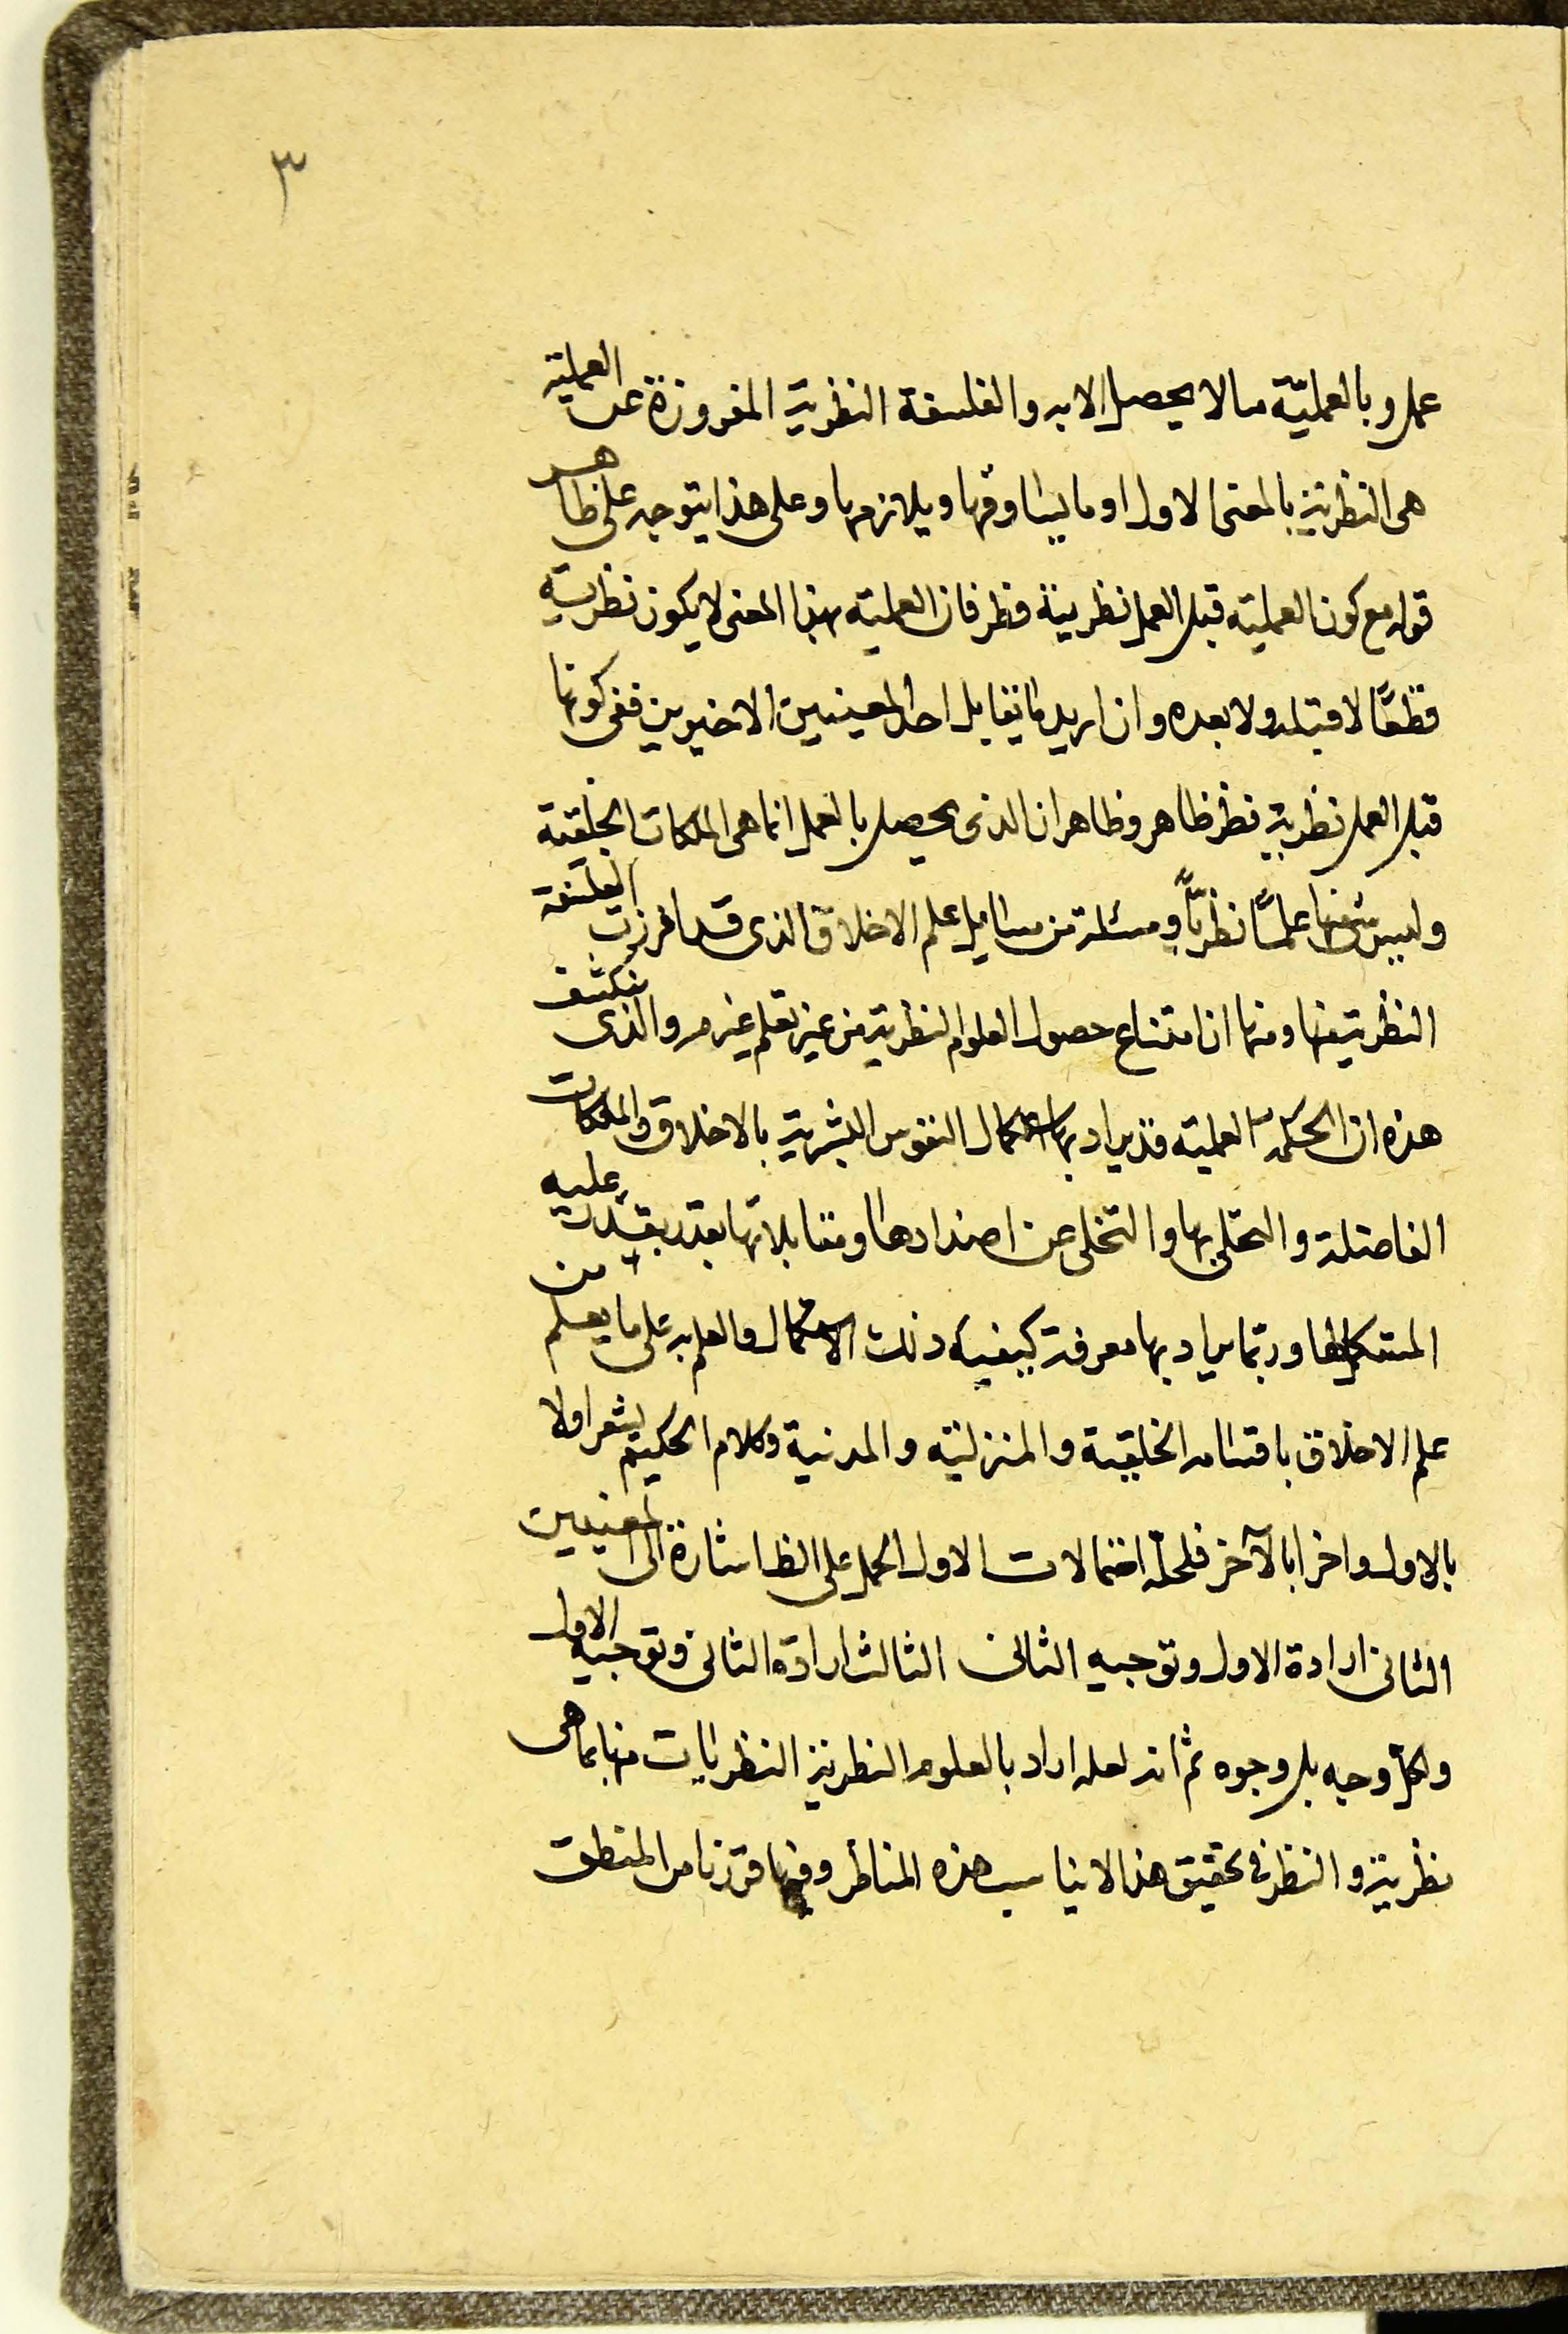 ٣
عمل وبالعمليّة ما لا يحصل الا به والفلسفة النظرية المفروزة عن العملية
هى النظرية بالمعنى الاول او ما يساوقها ويلازمها وعلى هذا يتوجه على ظاهر
قوله مع كون العملية قبل العمل نظرية فان العملية بهذا المعنى لا يكون نظرية
قطعًا لا قبله ولا بعده وان اريد ما يقابل احد المعنيين الاخيرين ففى كونها
قبل العمل نظرية نظر ظاهر وظاهر ان الذى يحصل بالعمل انما هى الملكات الخلقية
وليس شئ منها علمًا نظريًّا ومسئلة من مسايل علم الاخلاق الذى قد افرزت الفلسفة
النظرية عنها ومنها ان امتناع حصول العلوم النظرية من غير تعلم غير والذى ينكشف
هذه ان الحكمة العملية قد يراد بها استكمال النفوس البشرية بالاخلاق والملكات
الفاضلة والتحلى بها والتخلى عن اضدادها ومقابلاتها بقدر يقتدر عليه
المستكمل لها وربما يراد بها معرفة كيفية ذلك الاستكمال والعلم به على ما يعلم من
علم الاخلاق باقسامه الخلقية والمنزلية والمدنية وكلام الحكيم يشعر اولا
بالاول واخرا بالآخر فلحمله احتمالات الاول الحمل على الظ اشارة الى المعنيين
الثانى ارادة الاول وتوجيه الثانى الثالث ارادة الثانى وتوجيه الاول
ولكل وجه بل وجوه ثم انه لعله اراد بالعلوم النظرية النظريات منها بما هى
نظرية والنظر فى تحقيق هذا لا يناسب هذه المناظر وفيما قررنا من المنطق